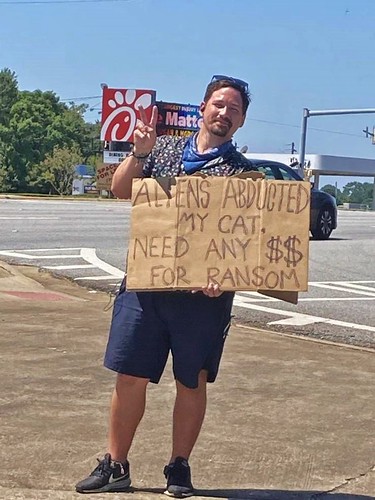 e Matte
ALIENS ABDUCTED
MY CAT.
NEED ANY $$
FOR RANSOM